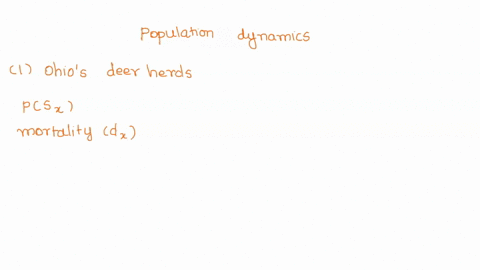 Population dynamics
(1) Ohio's deer herds
P(Sx)
mortality (dx)